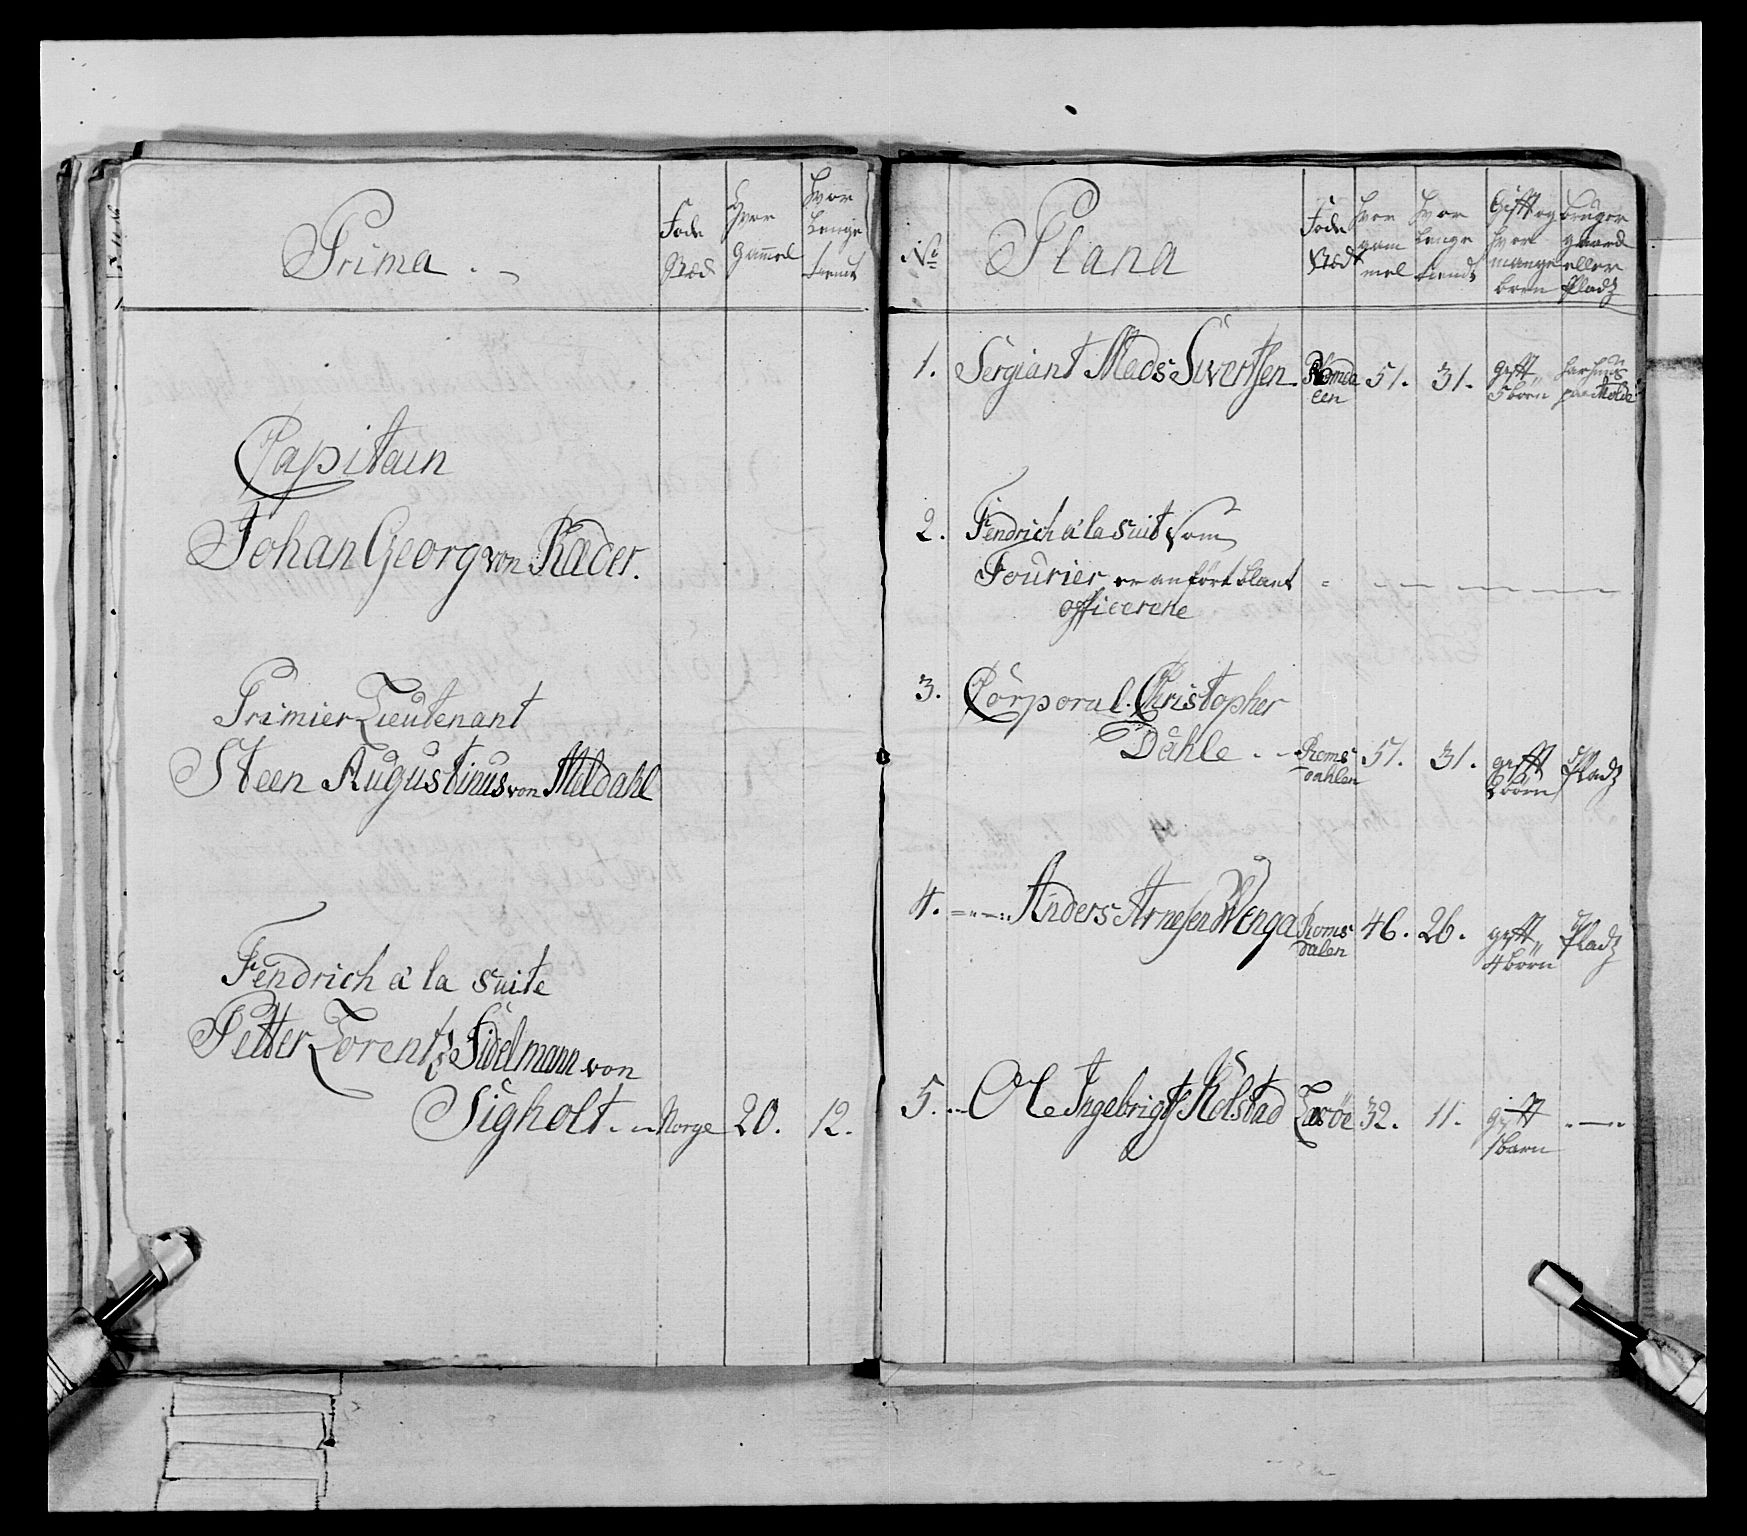 Prima.
Føde Stæd
Hvor Gammel
Hvor Lenge tient
Capitain
Johan Georg von Ræder.
Primier Lieutenant
Steen Augustinus von Meldahl
Fendrich a la Suite
Petter Lorentz Fidelmann von
Sigholt. Norge 20. 12.
No
Plana
Føde Stædt
Hvor gam mel
Hvor Lenge tiendt
Gift og hvor mange børn
bruger gaard eller Pladz
1. Sergiant Mads Sivertsen. Romsda 51. 31. gift
len 5 børn paa Molde
2. Fendrich a la Suit som
Fourier er anført blant
officerene
3. Corporal. Christopher
Dahle Roms 51. 31. gift Pladz
dahlen børn
4. Anders Arnesen Wenga Roms 46. 26. gift Pladz
dalen 4 børn
5. Ole Ingebrigts Kolstad 32. 11. gift
1 barn